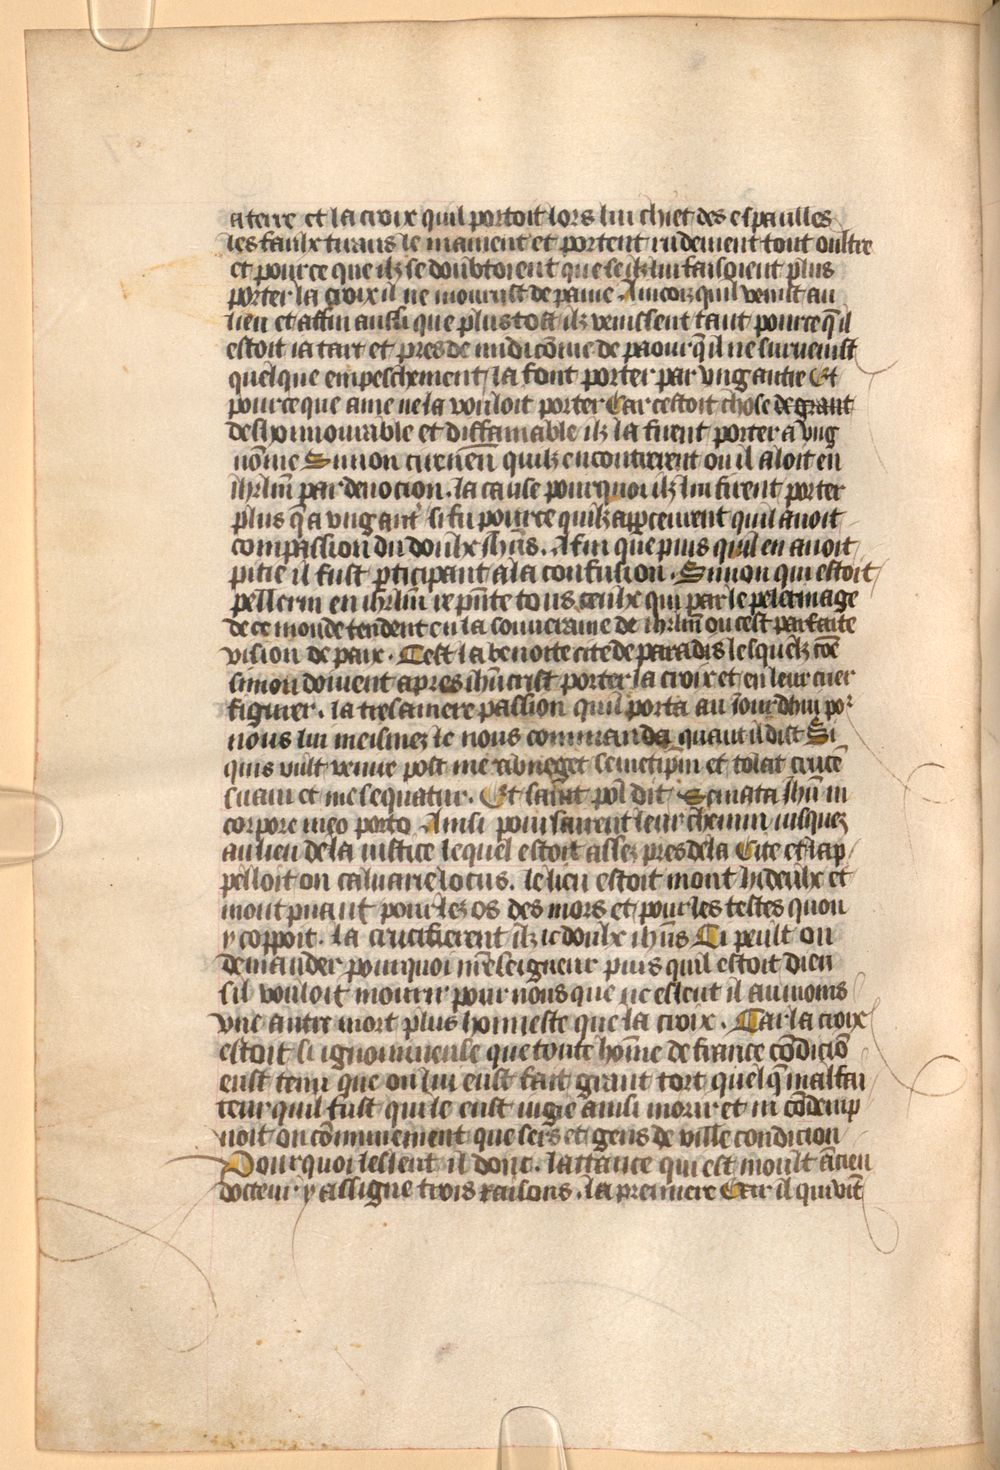 a terre et la croix quil portoit lors lui chiet des espaulles
les faulx tirans le mainent et portent rudement tout oultre
et pource que ilz se doubtoient que se ilz lui faisoient plus
porter la croix il ne mourust de paine. Aincoiz quil venist au
lieu et affin aussi que plus tost ilz venissent tant pource q̃ il
estoit ia tart et pres de midi cõme de paour q̃ il ne suruenist
quelque empeschement / la font porter par vng autre Et
pource que ame ne la vouloit porter Car cestoit chose de grant
deshonnourable et diffamable ilz la firent porter a vng
nõme Simon cirenen̄ quilz encontrerent ou il aloit en
ihrl̃m par deuocion. la cause pourquoi ilz lui firent porter
plus q̃ a vng aut̾ si fu pource quilz apperceurent quil auoit
compassion du doulx ihũs. Afin que puis quil en auoit
pitie il fust p̱ticipant a la confusion. Simon qui estoit
pellerin en ihrl̃m rep̃nte tous ceulx qui par le pelerinage
de ce monde tendent en la souueraine de ihrl̃m ou cest parfaite
vision de paix. Cest la benoite cite de paradis lesquelz cõe
simon doiuent apres ihũcrist porter la croix et en leur cuer
figurer. la tresamere passion quil porta au iourdhui po᷑
nous lui meismez le nous commanda quant il dist Si
quis vult venire post me abneget semetip̃m et tolat crucẽ
suam et me sequatur. Et saint pol dit Stigmata ihũ in
corpore meo porto Ainsi poursuirent leur chemin iusquez
au lieu de la iustice lequel estoit assez pres de la Cite et lap /
pelloit on caluarie locus. le lieu estoit mont hideulx et
mont puant pour lez os des mors et pour les testes quon
y coppoit. la crucifierent ilz le doulx ihũs Ci peult on
demander pourquoi nr̃e seigneur puis quil estoit dieu
sil vouloit mourir pour nous que ne esleut il aumoins
vne autre mort plus honneste que la croix. Car la croix
estoit si ignominieuse que toute hõme de france cõdiciõ
eust tenu que on lui eust fait grant tort quelq̃ malfai /
teur quil fust qui le eust iugie ainsi morir et ni cõdemp
noit on cõmunement que serfs et gens de ville condicion
Pourquoi lesleut il donc. lattance qui est moult ãcien
docteur y assigne trois raisons. la premiere Car il qui vĩt